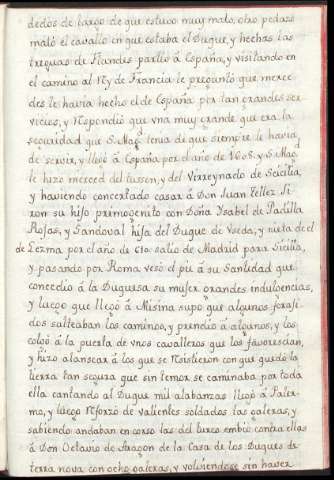 dedos de largo de que estuvo muy malo, otro pedaso
mató el cavallo en que estaba el Duque, y hechas las
treguas de Flandes partió á España, y visitando en
el camino al Ry de Francia le preguntó que merce
des le havia hecho el de España por tan grandes ser
vicios, y Respondió que vna muy grande que era la
seguridad que S. Magd. tenia de que siempre le havia
de servir, y llegó á España por el año de 1608. y S. Magd.
le hizo merced del tusson, y del Virreynado de Scicilia,
y haviendo concertado casar á Don Juan Tellez Ji
ron su hijo premogenito con Doña Ysabel de Padilla
Rojas, y Sandoval hija del Duque de Vseda, y nieta de el
de Lerma por el año de 610. salio de Madrid para Sicilia,
y pasando por Roma vesó el pie á su Santidad que
concedió á la Duquesa su mujer grandes indulgencias,
y luego que llegó á Misina supo que algunos foraji
dos salteaban los caminos, y prendió á algunos, y los
colgó á la puerta de vnos cavalleros que los favorescian,
y hizo alansear á los que se Resistieron con que quedó la
tierra tan segura que sin temor se caminaba por toda
ella cantando al Duque mil alabanzas llegó á Paler-
mo, y luego Reforzó de valientes soldados las galeras, y
sabiendo andaban en corso las del turco embió contra ellas
á Don Octavio de Aragon de la Casa de los Duques de
terra nova con ocho galeras, y volviendose sin haver